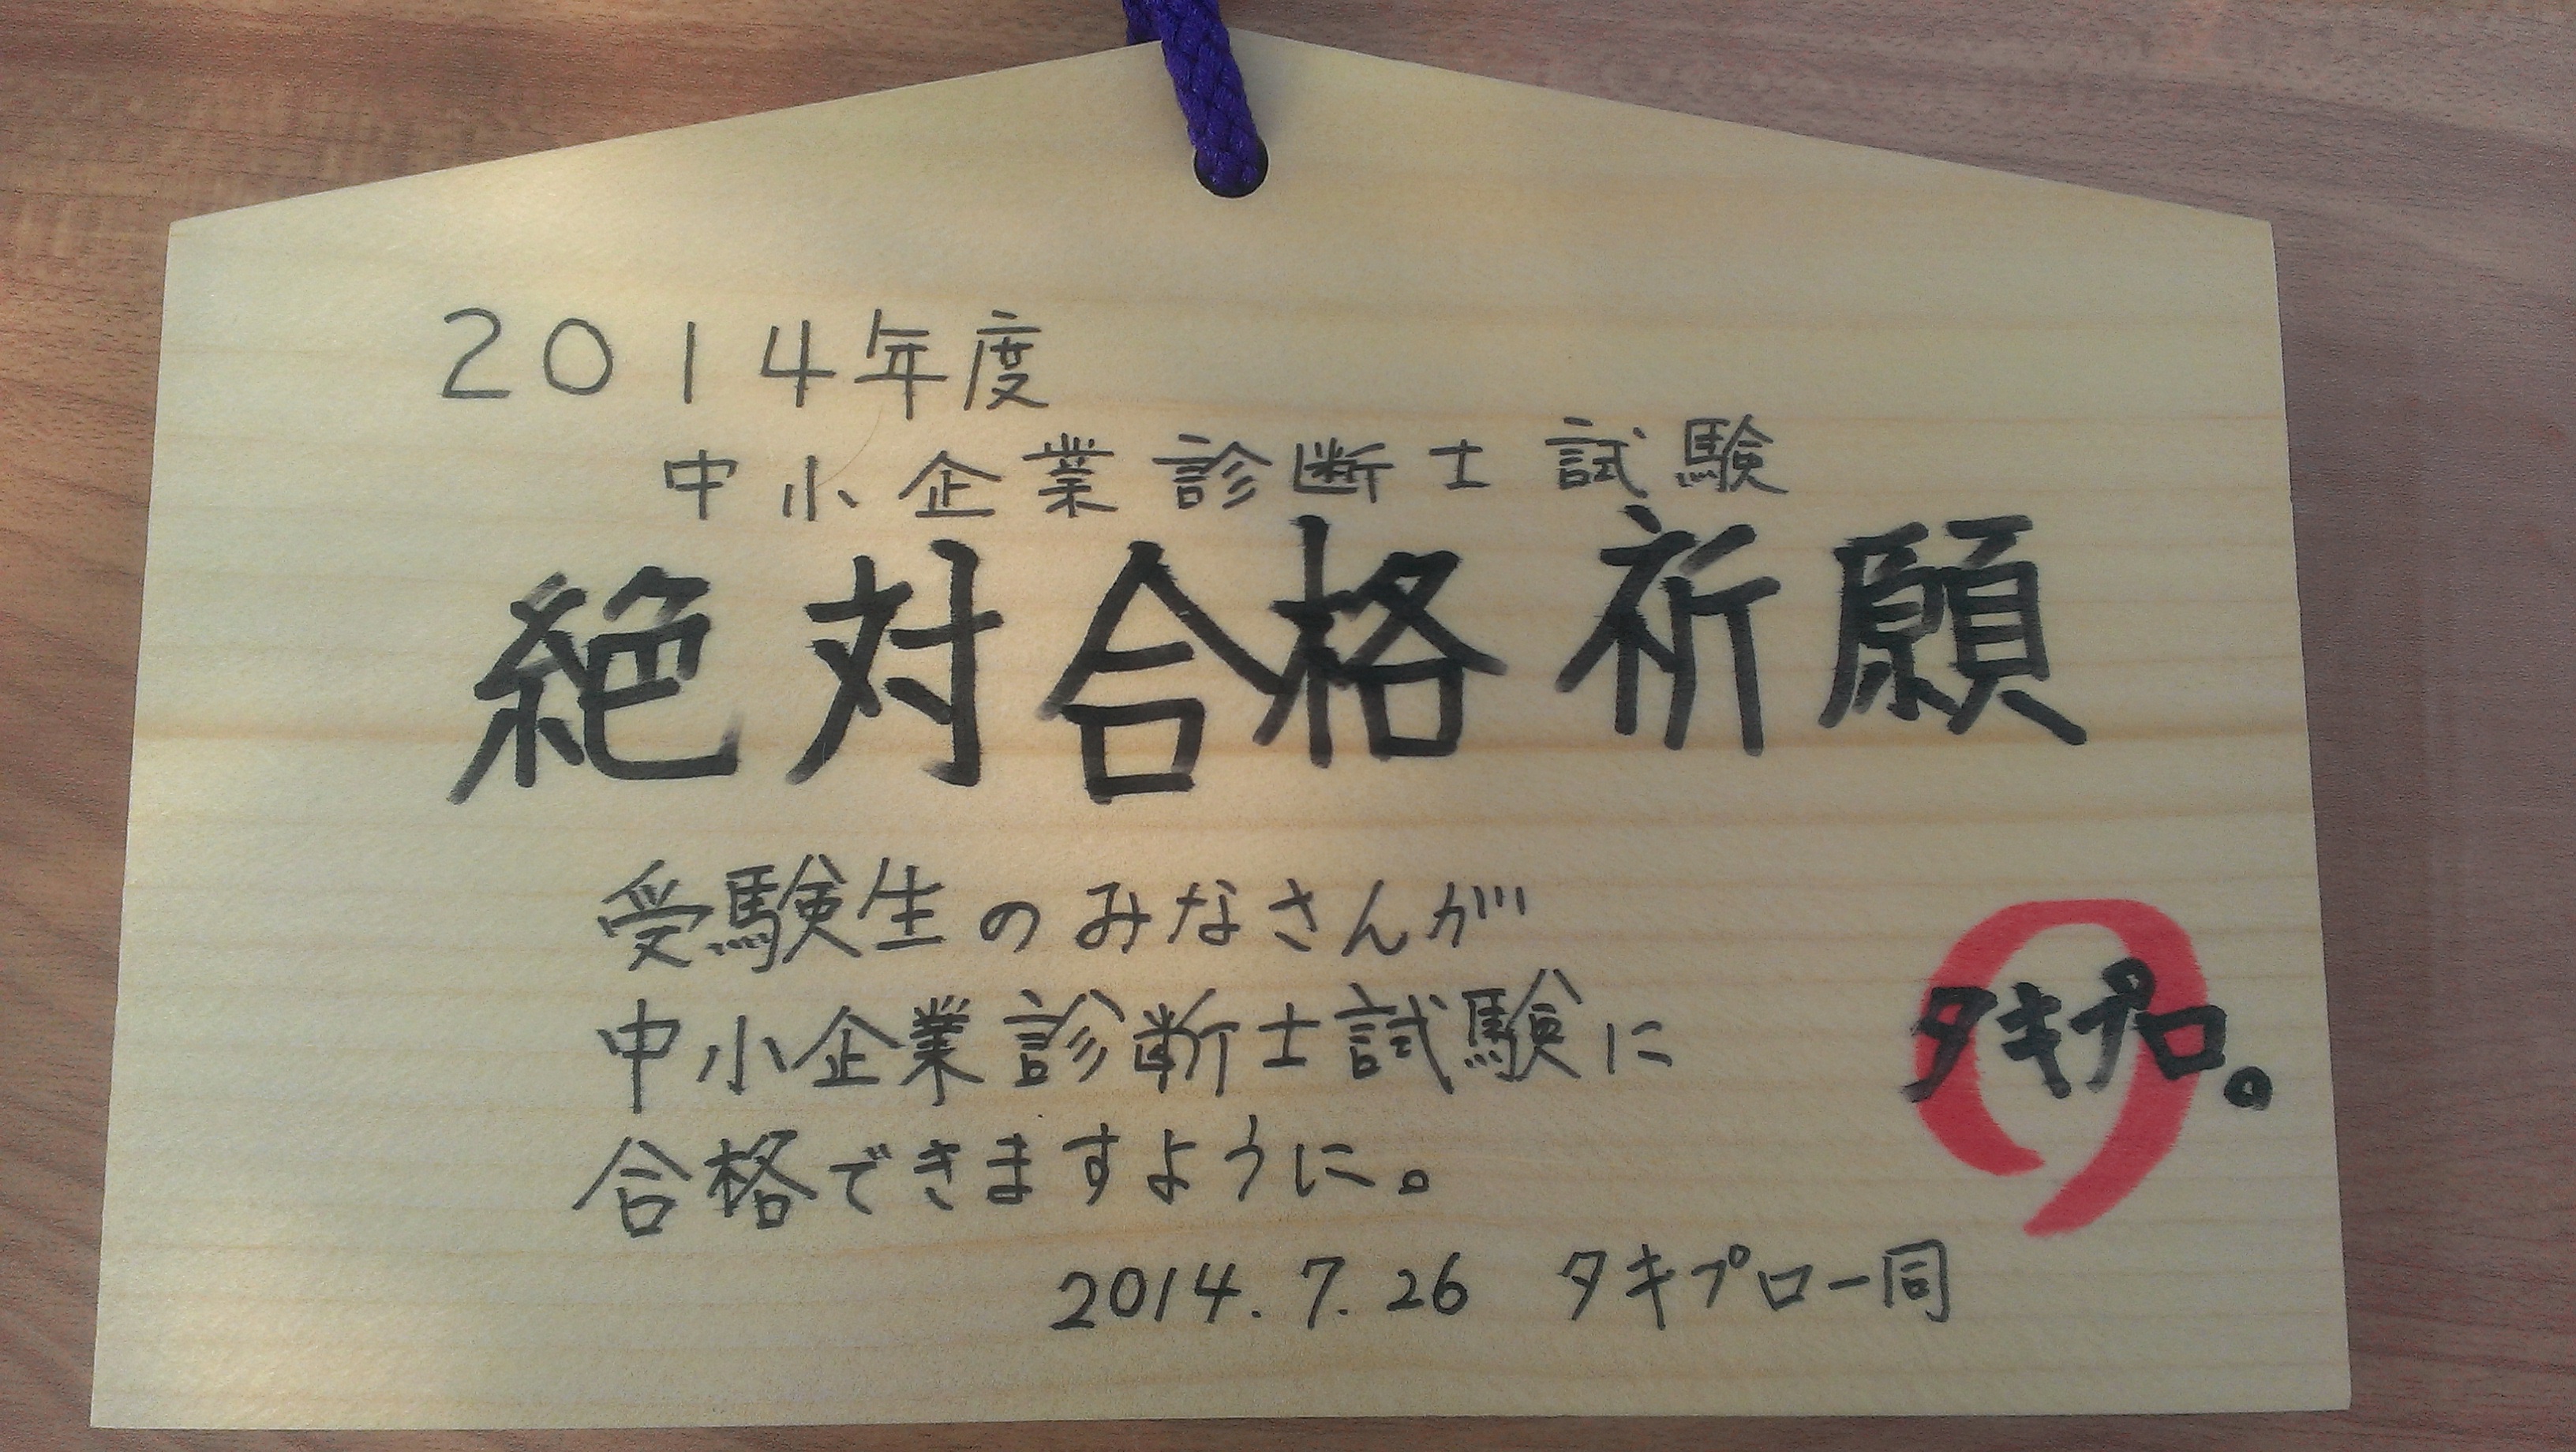 2014年度
中小企業診断士試験
絶対合格祈願
受験生のみなさんが
中小企業診断士試験に
合格できますように。
タキプロ。
2014.7.26 タキプロ一同